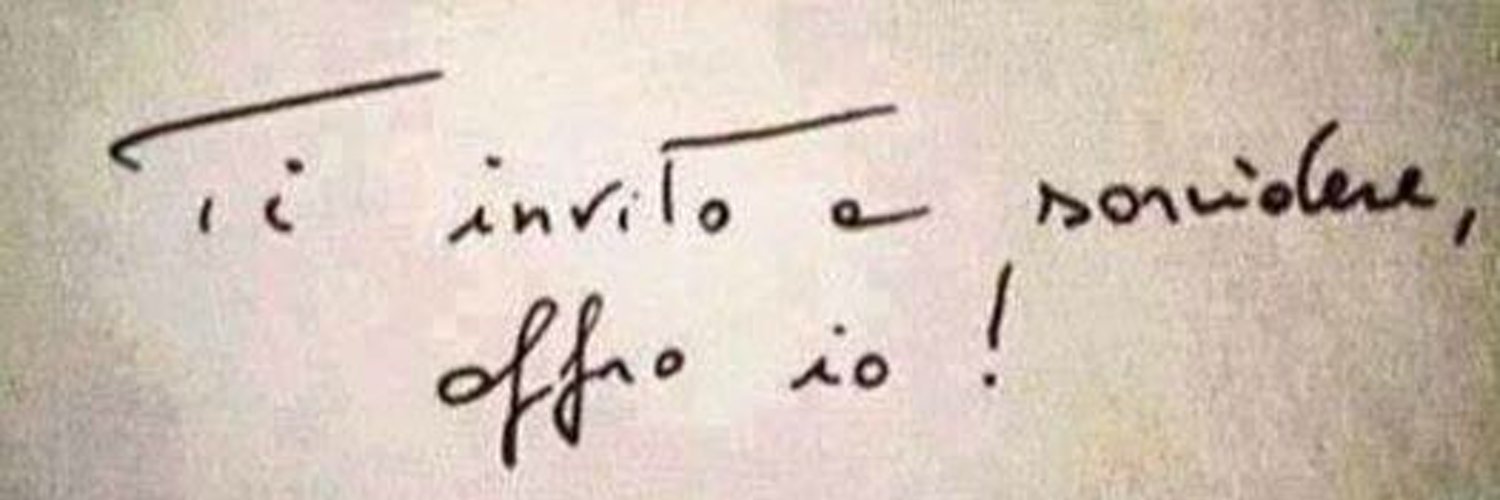 Ti invito a sorridere,
offro io !